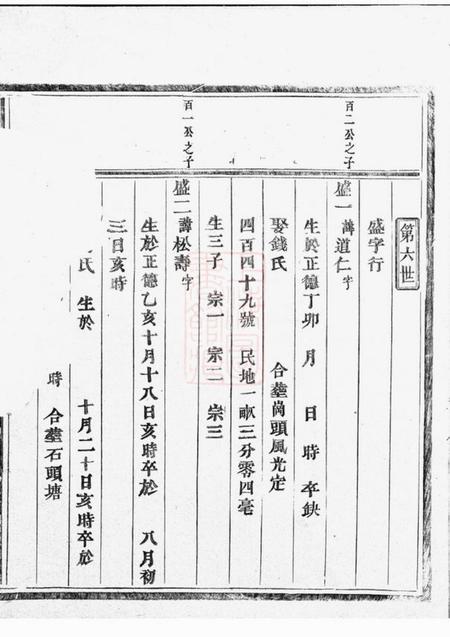 第六世
盛字行
百二公之子
盛一 諱道仁 字
生於正德丁卯 月 日 時 卒缺
娶錢氏 合塟崗頭風光定
四百四十九號 民地一畝三分零四毫
生三子 宗一 宗二 宗三
百一公之子
盛二 諱松壽 字
生於正德乙亥十月十八日亥時卒於 八月初
三日亥時
氏 生於 十月二十日亥時卒於
時 合塟石頭塘